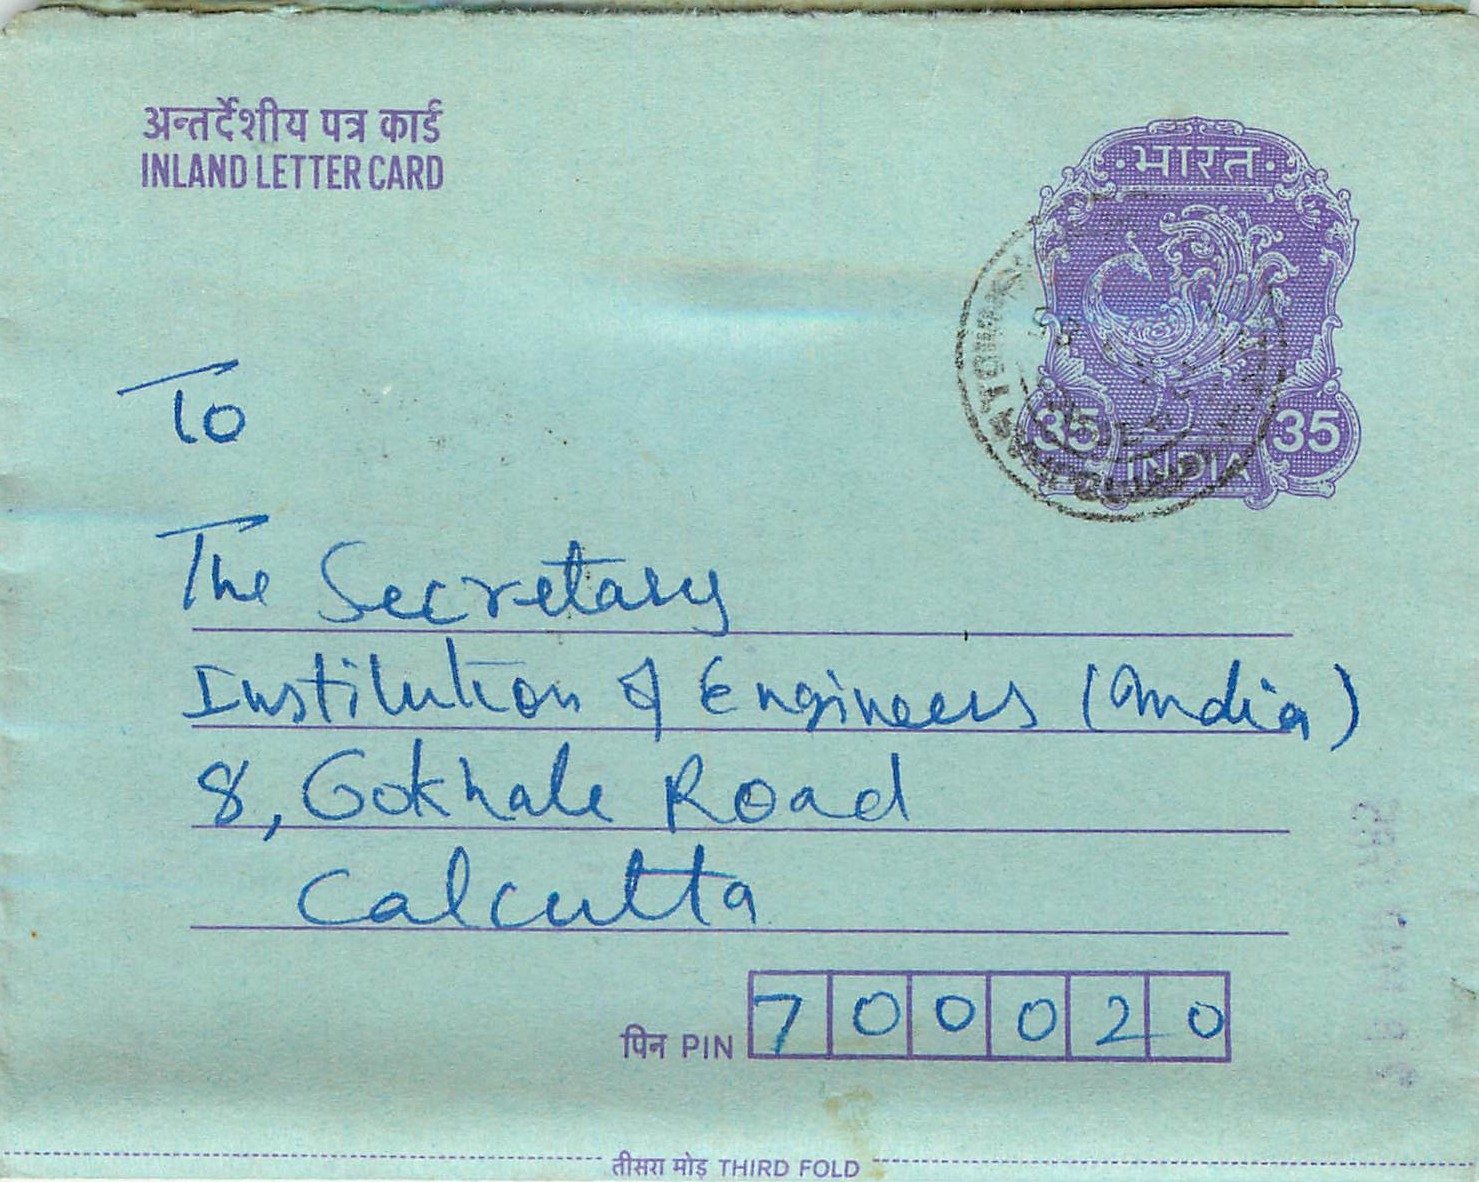 अन्तर्देशीय पत्र कार्ड
INLAND LETTER CARD
भारत
35 35
INDIA
To
The Secretary
Institution of Engineers (India)
8, Gokhale Road
Calcutta
पिन PIN 700020
तीसरा मोड़ THIRD FOLD